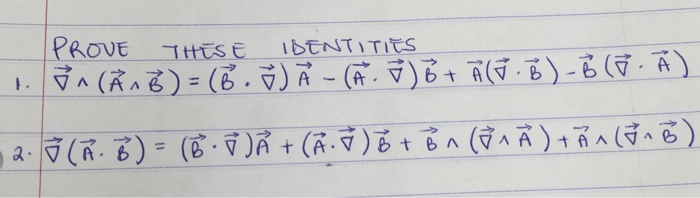 PROVE THESE IDENTITIES
1. ∇⃗ ∧ (A⃗ ∧ B⃗) = (B⃗ · ∇⃗) A⃗ − (A⃗ · ∇⃗) B⃗ + A⃗(∇⃗ · B⃗) − B⃗ (∇⃗ · A⃗)
2. ∇⃗ (A⃗ · B⃗) = (B⃗ · ∇⃗)A⃗ + (A⃗ · ∇⃗) B⃗ + B⃗ ∧ (∇⃗ ∧ A⃗) + A⃗ ∧ (∇⃗ ∧ B⃗)